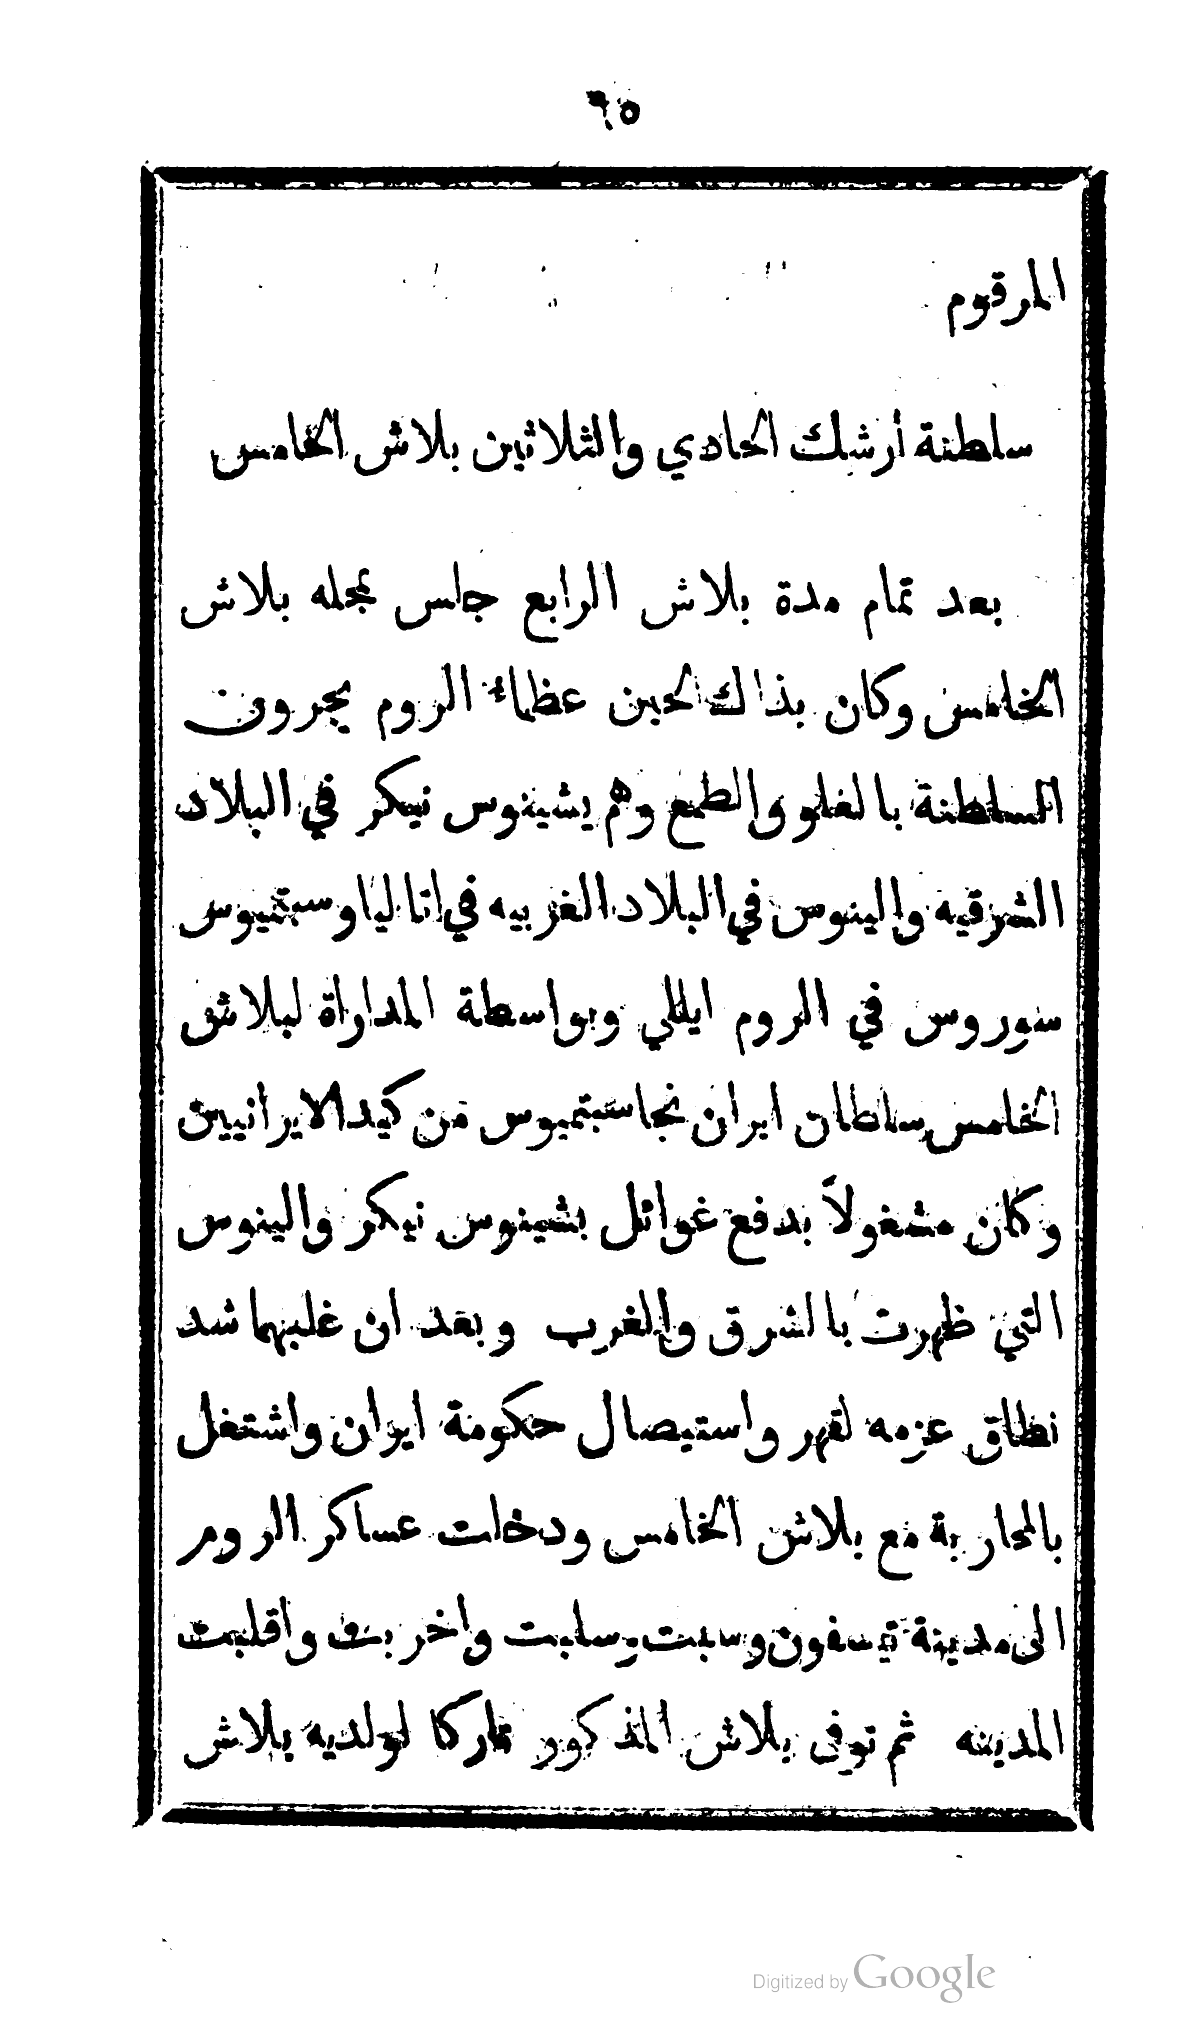 ٦٥
المرقوم
سلطنة أرشك الحادي والثلاثين بلاش الخامس
بعد تمام مدة بلاش الرابع جلس بمحله بلاش
الخامس وكان بذاك الحين عظماء الروم يجرون
السلطنة بالغلو والطمع وهم يشينوس نيكر في البلاد
الشرقيه والينوس في البلاد الغربيه في اتاليا وسبتميوس
سوروس في الروم ايللي وبواسطة المداراة لبلاش
الخامس سلطان ايران نجا سبتميوس من كيد الايرانيين
وكان مشغولاً بدفع غوائل بشينوس نيكر والينوس
التي ظهرت بالشرق والغرب وبعد ان غلبهما شد
نطاق عزمه لقهر واستيصال حكومة ايران واشتغل
بالمحاربة مع بلاش الخامس ودخلت عساكر الروم
الى مدينة تيسفون وسبت وسلبت واخربت واقلبت
المدينه ثم توفى بلاش المذكور تاركا لولديه بلاش
Digitized by Google